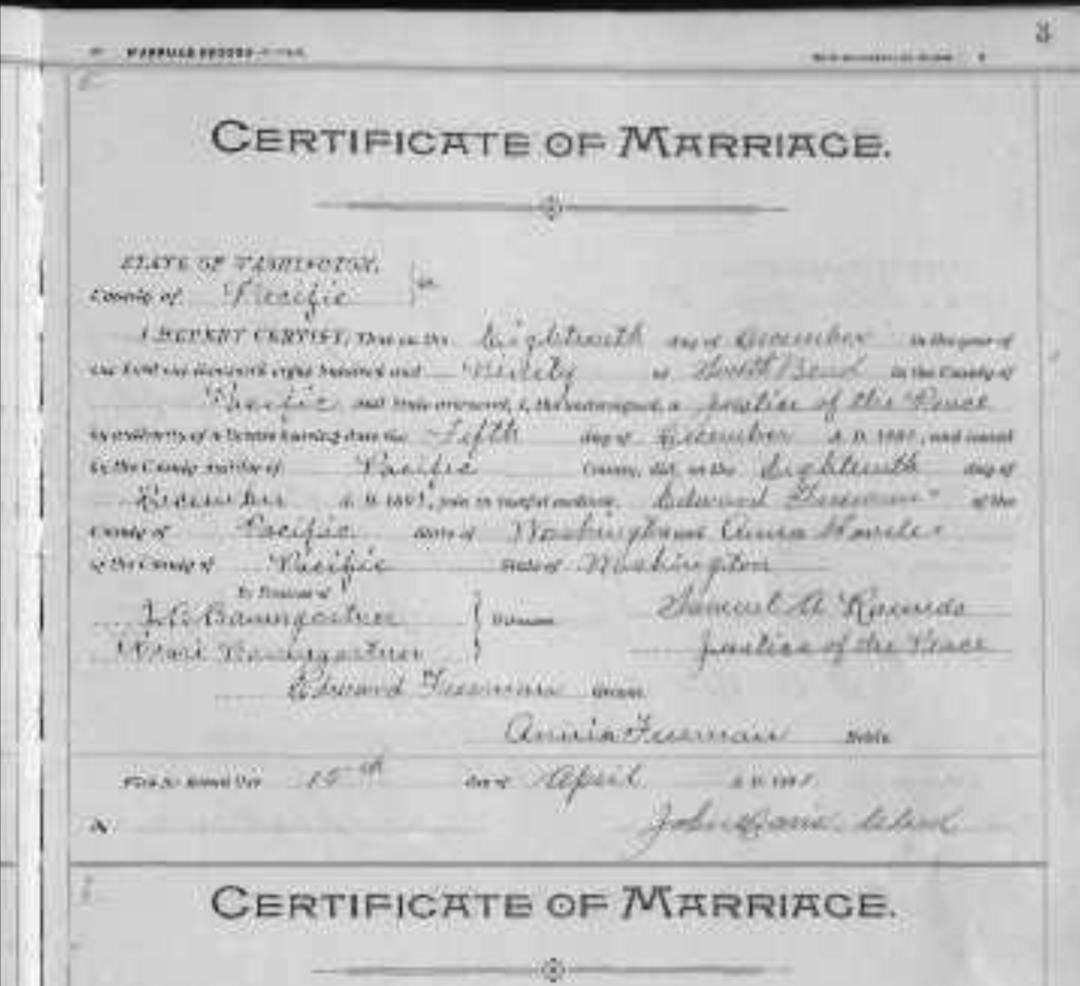 3
MARRIAGE RECORD
CERTIFICATE OF MARRIAGE.
STATE OF WASHINGTON,
County of Pacific ss.
I HEREBY CERTIFY, That on the Eighteenth day of December in the year of
our Lord one thousand eight hundred and Ninety at South Bend in the County of
Pacific and State aforesaid, I, the undersigned, a justice of the Peace
by authority of a license bearing date the Fifth day of December A. D. 189, and issued
by the County Auditor of Pacific County, did, on the Eighteenth day of
December A. D. 189, join in lawful wedlock Edward Freeman of the
County of Pacific State of Washington and Anna
of the County of Pacific State of Washington
In Presence of
Baumgartner Witnesses Samuel A
Baumgartner justice of the Peace
Edward Freeman Groom
Annia Freeman Bride
Filed for Record this 15th day of April A. D. 189
By John Clerk
CERTIFICATE OF MARRIAGE.